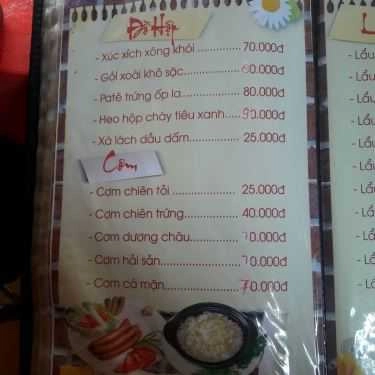 Đồ Hộp
- Xúc xích xông khói.............. 70.000đ
- Gỏi xoài khô sặc............... 60.000đ
- Patê trứng ốp la................ 80.000đ
- Heo hộp cháy tiêu xanh.... 90.000đ
- Xà lách dầu dấm............... 25.000đ
Cơm
- Cơm chiên tỏi.................. 25.000đ
- Cơm chiên trứng.............. 40.000đ
- Cơm dương châu............. 70.000đ
- Cơm hải sản.................... 70.000đ
- Cơm cá mặn................... 70.000đ
- Lẩu
- Lẩu
- Lẩu
- Lẩu
- Lẩu
- Lẩu
- Lẩu
- Lẩu
- Lẩu
- Lẩu